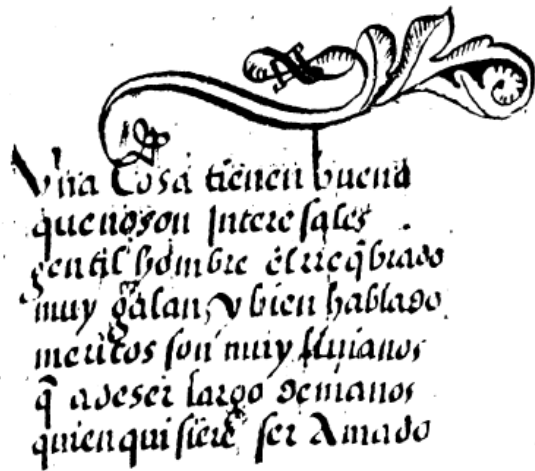 Vna Cosa tienen buena
que no son Interesales
gentil hombre el rreq̃brado
muy galan, y bien hablado
meritos son muy liuianos
q̃ a de ser largo de manos
quien quisiere ser Amado